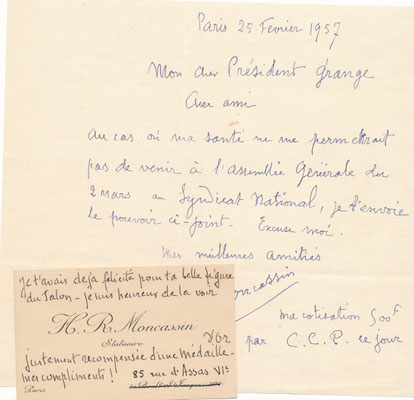 Paris 25 Fevrier 1957
Mon cher Président Grange
Cher ami
Au cas où ma santé ne me permettrait
pas de venir à l'Assemblée Générale du
2 mars au Syndicat National, je t'envoie
le pouvoir ci-joint. Excuse moi.
Mes meilleures amitiés
Moncassin
ma cotisation 500f
par C.C.P. ce jour
je t'avais deja félicité pour ta belle figure
du Salon - je suis heureux de la voir
H. R. Moncassin
Statuaire
d'Or
justement recompensée d'une Médaille
mes compliments !
85 rue d'Assas VIe
Paris